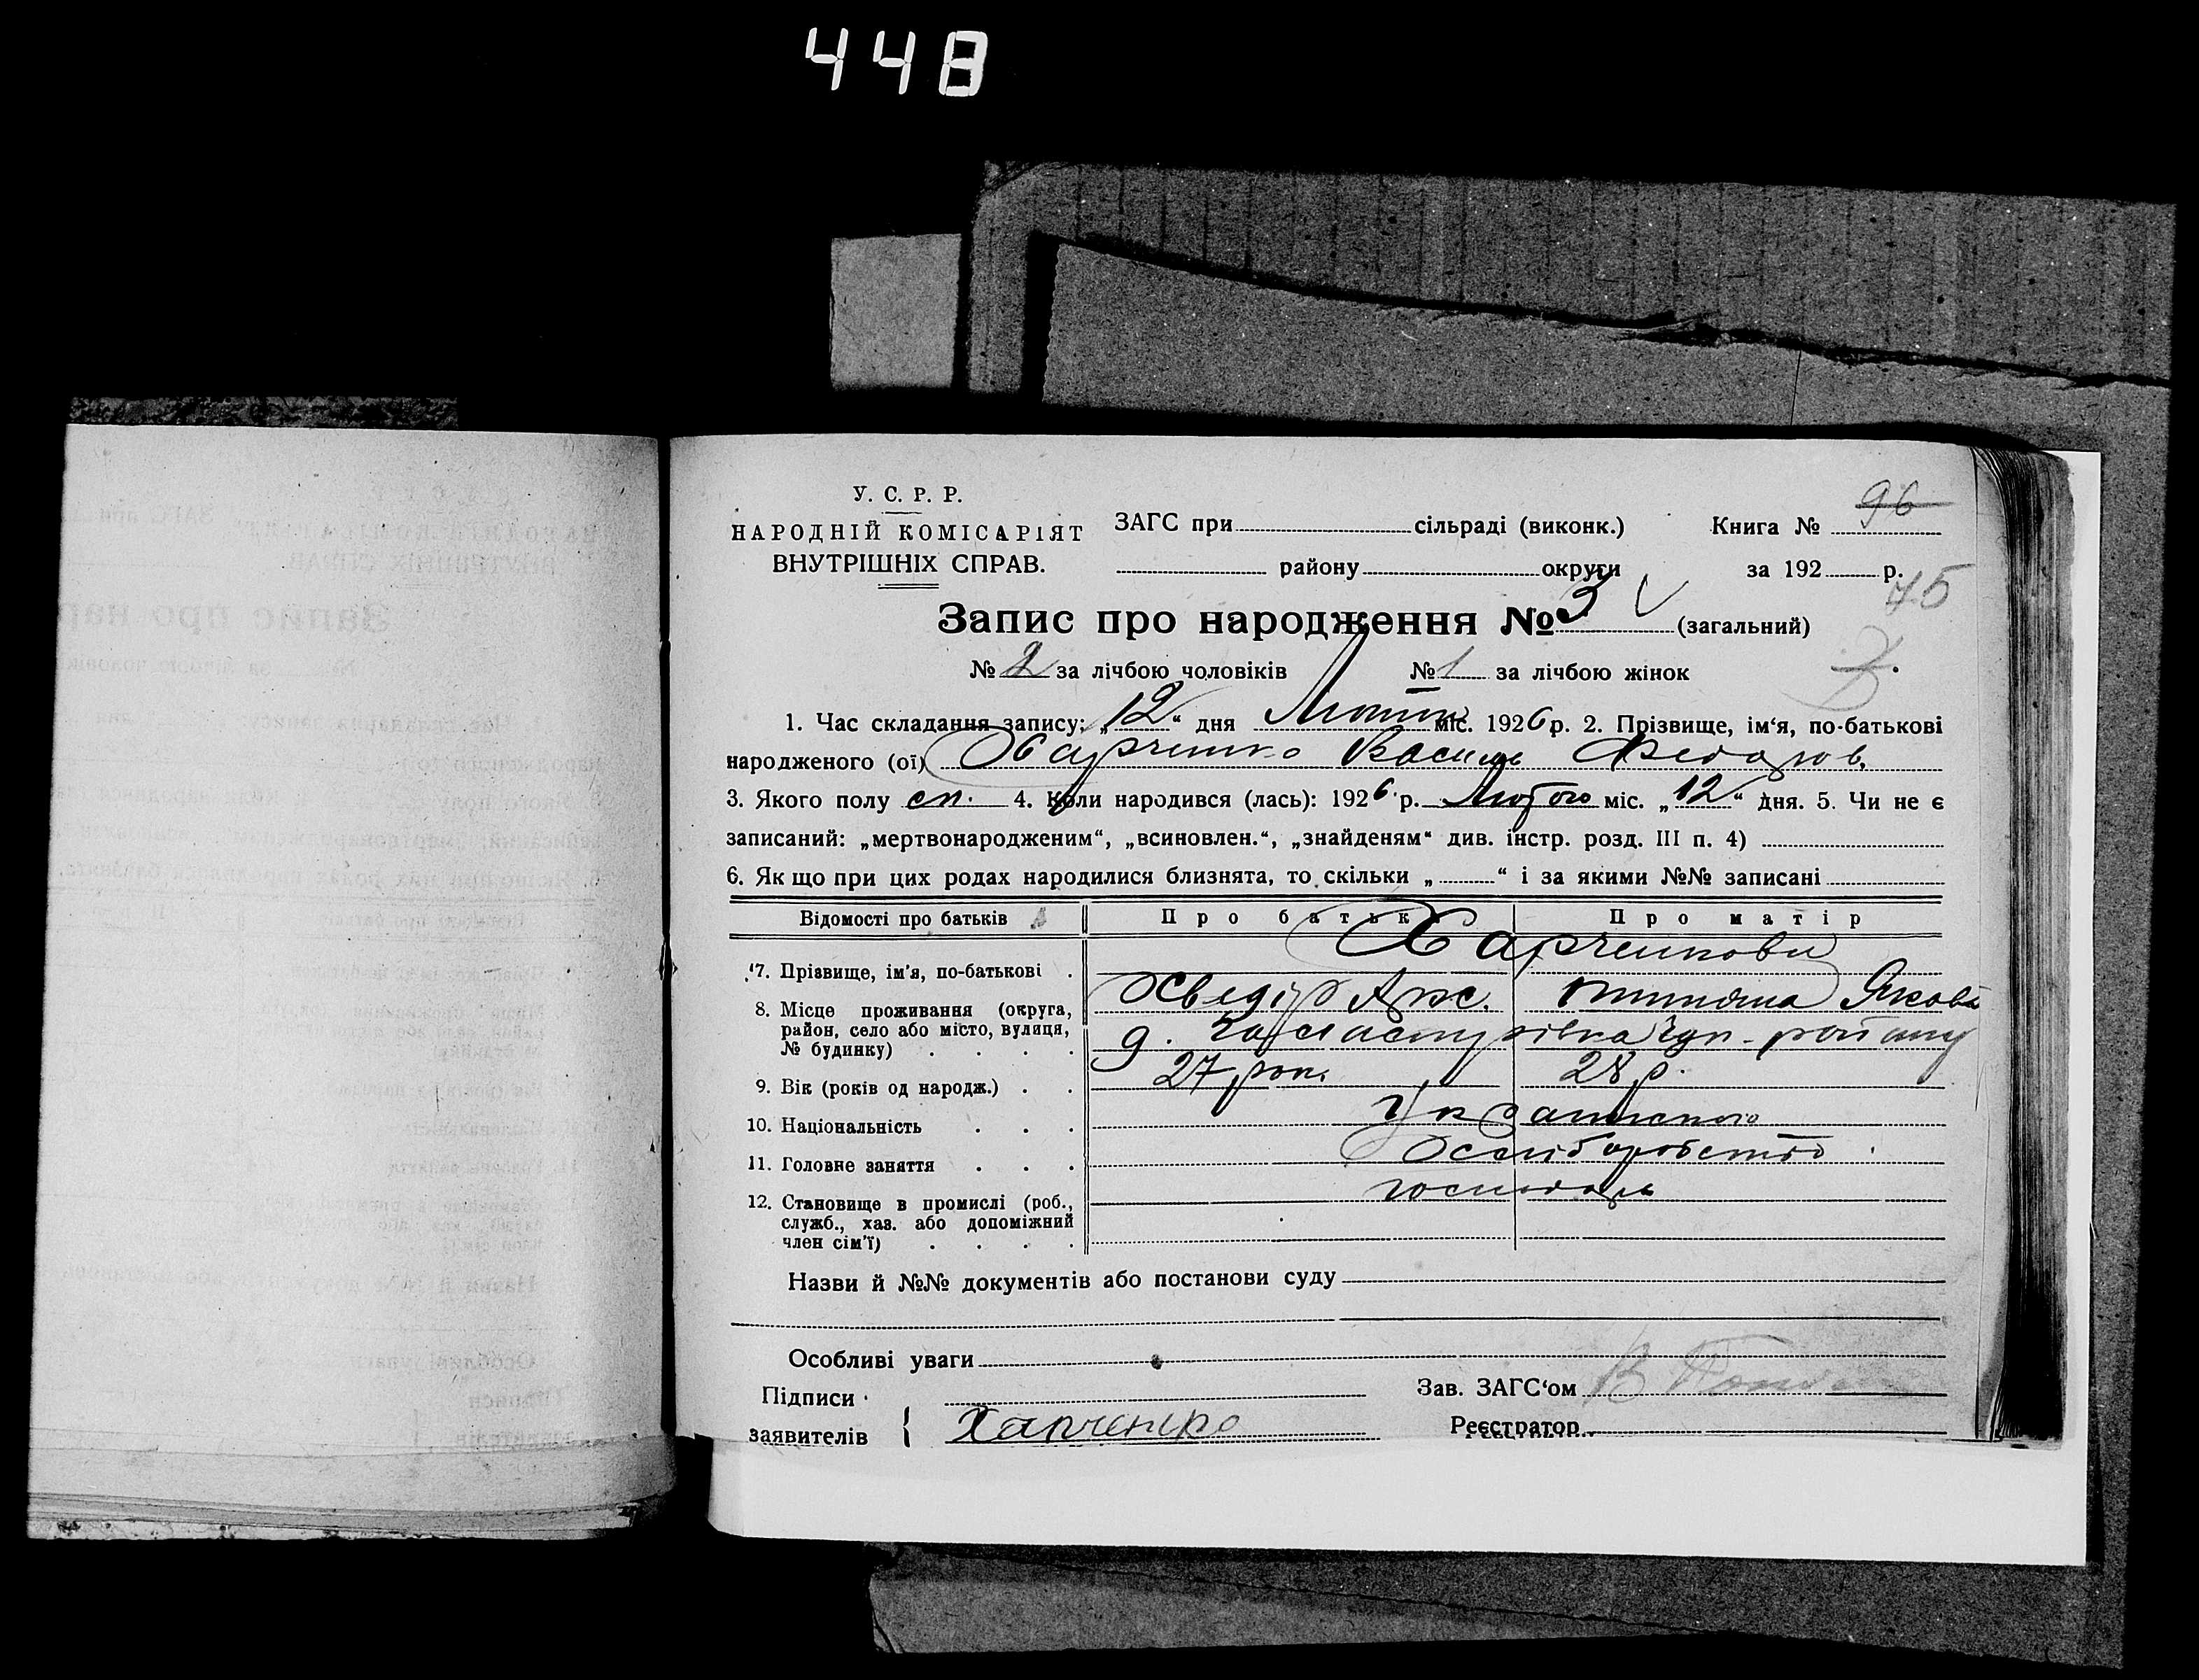 448
У. С. Р. Р.
НАРОДНІЙ КОМІСАРІЯТ
ВНУТРІШНІХ СПРАВ.
ЗАГС при сільраді (виконк.)
району округи
Книга № 96
за 192 р.
75
Запис про народження № 3 (загальний)
№ 2 за лічбою чоловіків № 1 за лічбою жінок
1. Час складання запису: „12“ дня міс. 1926 р. 2. Прізвище, ім‘я, по-батькові
народженого (ої) Харченко Василь Федоров.
3. Якого полу 4. Коли народився (лась): 1926 р. Лютого міс. „12“ дня. 5. Чи не є
записаний: „мертвонародженим“, „всиновлен.“, „знайденям“ див. інстр. розд. III п. 4)
6. Якщо при цих родах народилися близнята, то скільки „ “ і за якими №№ записані
Відомості про батьків Про батька Про матір
7. Прізвище, ім'я, по-батькові Харченкови
Хведір Якова
8. Місце проживання (округа,
район, село або місто, вулиця,
№ будинку)
району
9. Вік (років од народж.) 27 рок. 28 р.
10. Національність
11. Головне заняття
12. Становище в промислі (роб.,
служб., хаз. або допоміжний
член сім'ї)
господарь
Назви й №№ документів або постанови суду
Особливі уваги
Підписи
заявителів { Харченко
Зав. ЗАГС‘ом
Реєстратор